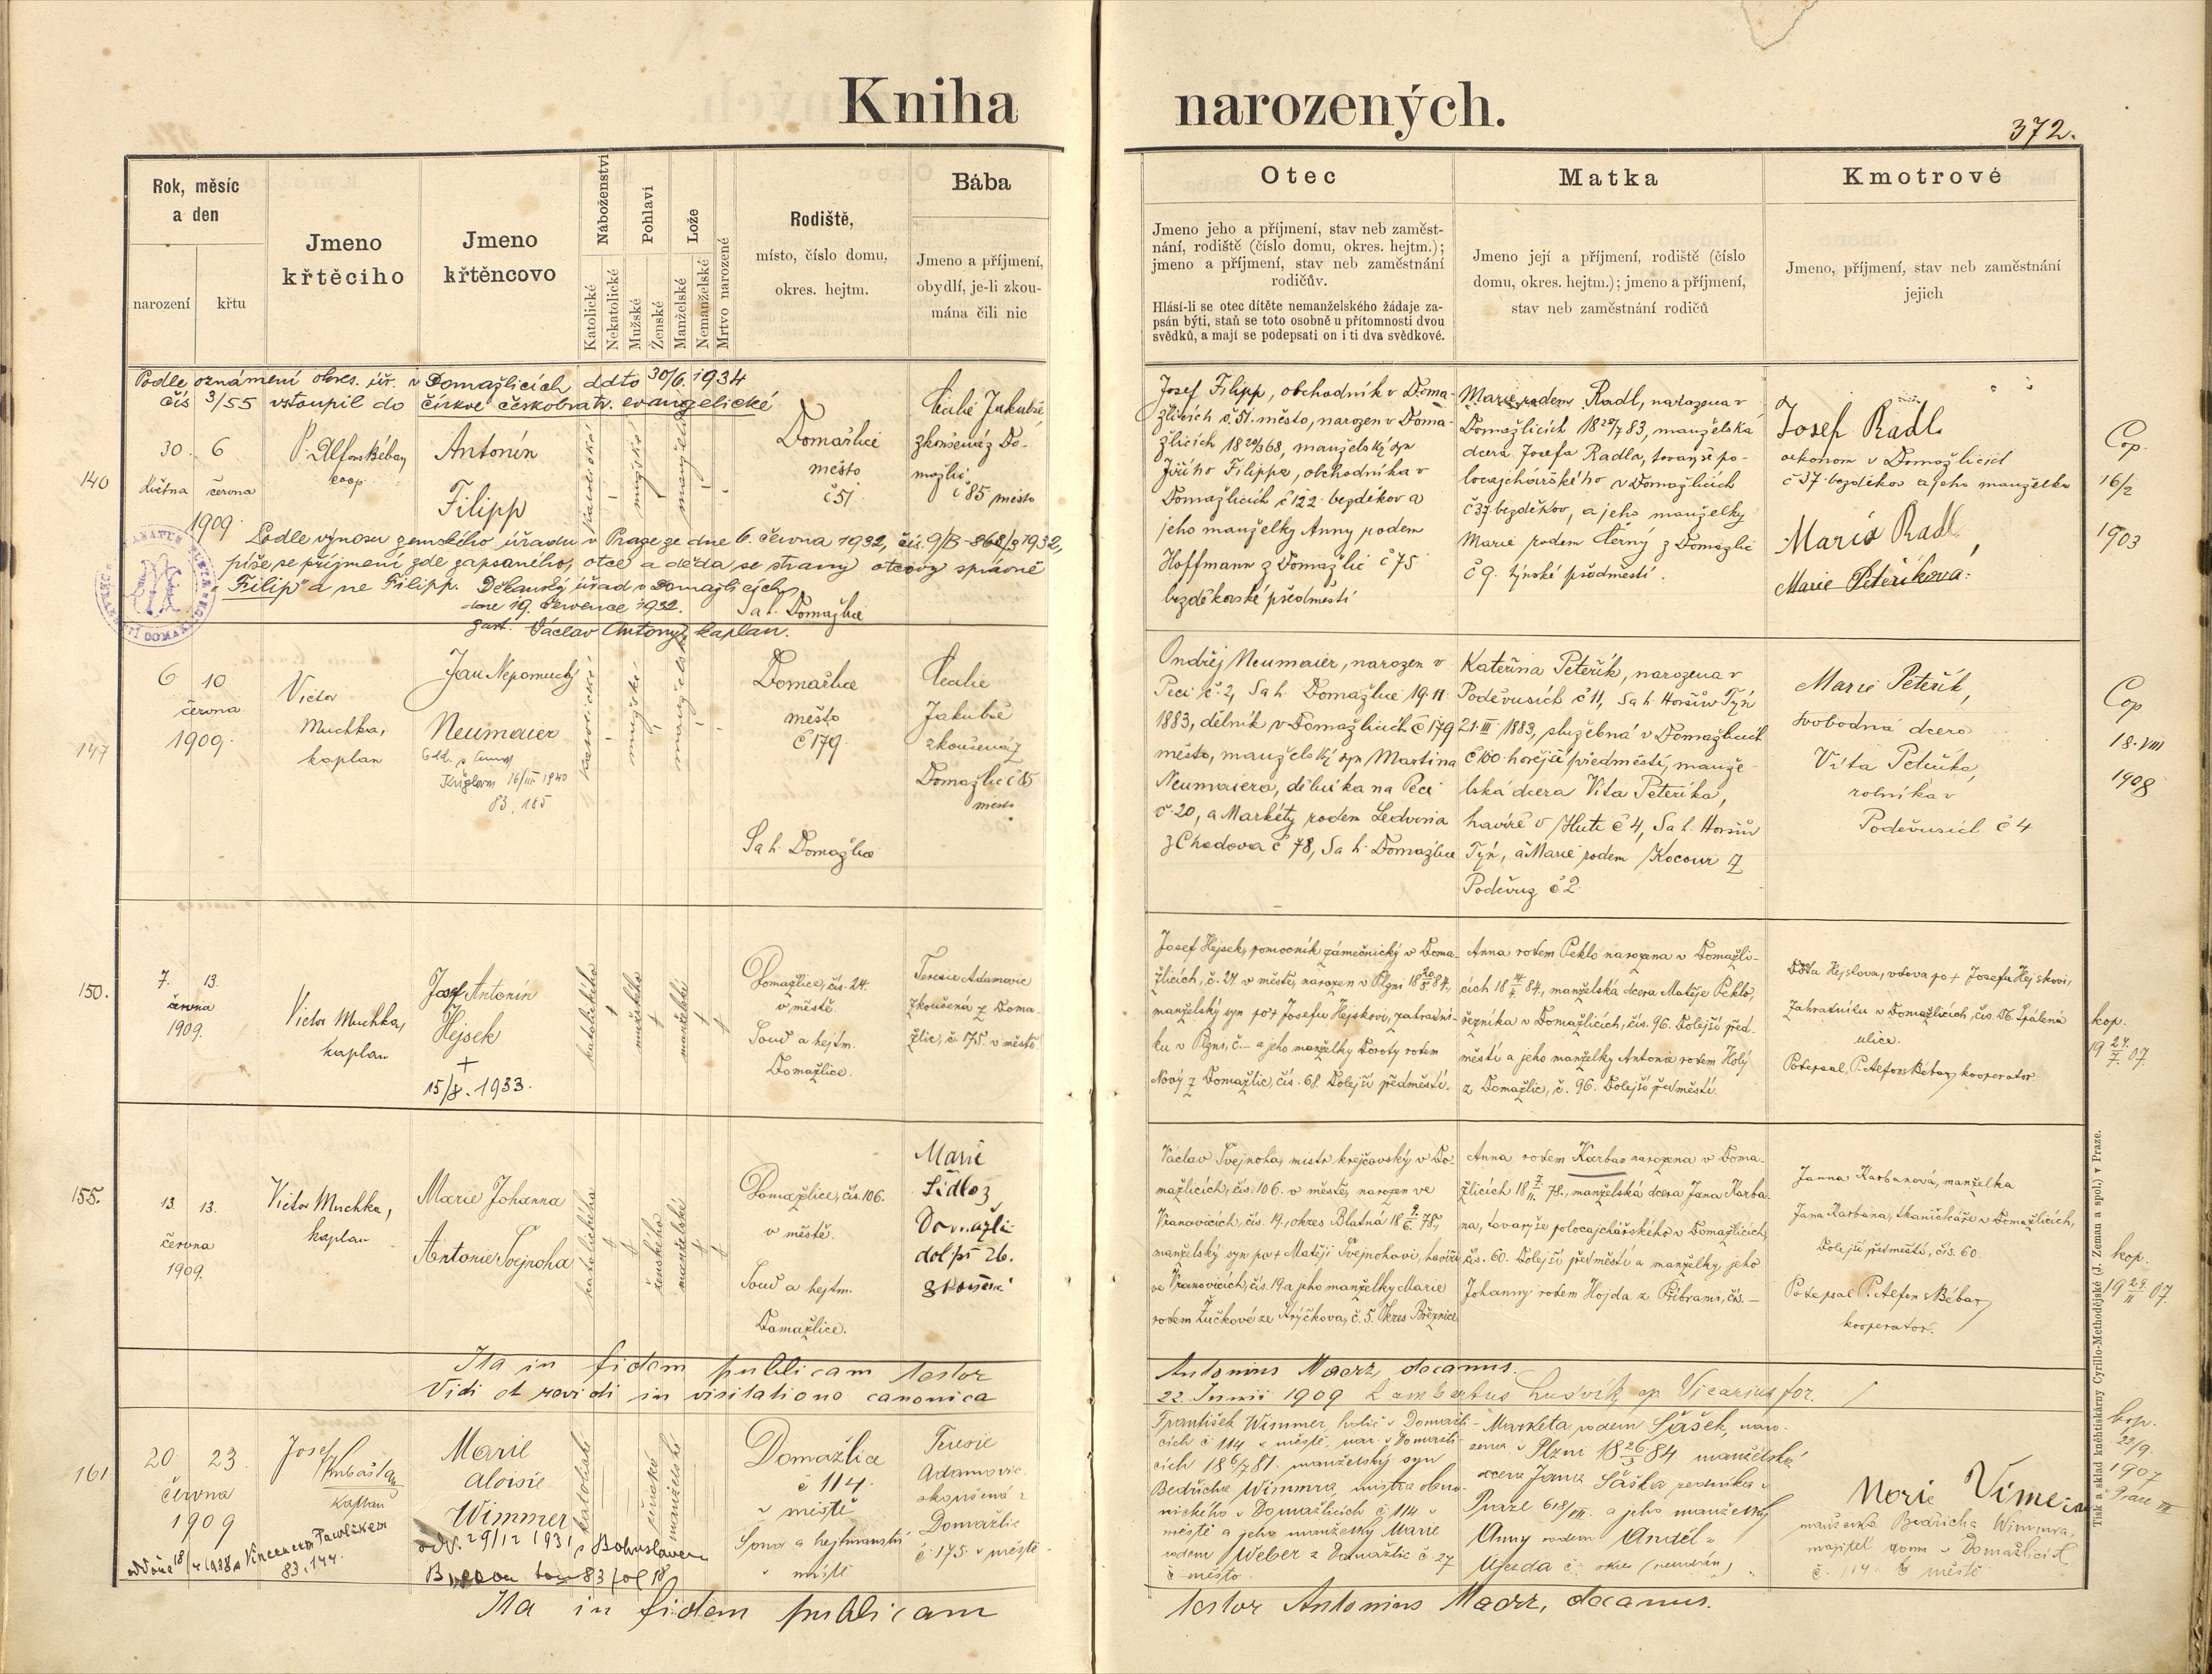 Kniha narozených.
372.
Rok, měsíc
a den
narození
křtu
Jmeno
křtěcího
Jmeno
křtěncovo
Náboženství
Katolické
Nekatolické
Pohlaví
Mužské
Ženské
Lože
Manželské
Nemanželské
Mrtvo narozené
Rodiště,
místo, číslo domu,
okres. hejtm.
Bába
Jmeno a příjmení,
obydlí, je-li zkou-
mána čili nic
Otec
Jmeno jeho a příjmení, stav neb zaměst-
nání, rodiště (číslo domu, okres. hejtm.);
jmeno a příjmení, stav neb zaměstnání
rodičův.
Hlásí-li se otec dítěte nemanželského žádaje za-
psán býti, staň se toto osobně u přítomnosti dvou
svědků, a mají se podepsati on i ti dva svědkové.
Matka
Jmeno její a příjmení, rodiště (číslo
domu, okres. hejtm.); jmeno a příjmení,
stav neb zaměstnání rodičů
Kmotrové
Jmeno, příjmení, stav neb zaměstnání
jejich
Podle oznámení okres. úř. v Domažlicích ddto 30/6. 1934
čís 3/55 vstoupil do církve českobratr. evangelické
140
30. 6
května června
1909.
P. Alfons Bébar
coop.
Antonín
Filipp
katolické
mužské
manželské
Domažlice
město
č 51
Sa h. Domažlice
Cecilie Jakubše,
zkoušená z Do-
mažlic
č 85 město
Podle výnosu zemského úřadu v Praze ze dne 6. června 1932, čís. 9/B-868/3 1932,
píše se příjmení zde zapsaného, otce a děda se strany otcovy správně
"Filip" a ne Filipp. Děkanský úřad v Domažlicích
dne 19. července 1932.
zast. Václav Antony, kaplan.
Josef Filipp, obchodník v Doma-
žlicích č. 51. město, narozen v Doma-
žlicích 18 20/3 68, manželský syn
Jiřího Filippa, obchodníka v
Domažlicích č 122 bezděkov a
jeho manželky Anny rodem
Hoffmann z Domažlic č 75
bezděkovské předměstí
Marie rodem Radl, narozena v
Domažlicích 18 20/7 83, manželská
dcera Josefa Radla, tovaryše po-
locajchářského v Domažlicích
č 37 bezděkov, a jeho manželky
Marie rodem Černý z Domažlic
č 9. týnské předměstí.
Josef Radl
oekonom v Domažlicích
č 37. bezděkov a jeho manželka
Maria Radl,
Marie Peteříková:
Cop.
16/2
1903
147
6 10
června
1909.
Victor
Muchka,
kaplan
Jan Nepomucký
Neumaier
16/III 1940
83. 185
katolické
mužské
manželské
Domažlice
město
č 179.
Sa h. Domažlice
Cecilie
Jakubše
zkoušená z
Domažlic č 85
město
Ondřej Neumaier, narozen v
Peci č. 2, Sa h. Domažlice 19. II.
1883, dělník v Domažlicích č 179
město, manželský syn Martina
Neumaiera, dělníka na Peci
č. 20, a Markéty rodem Ledvina
z Chodova č 78, Sa h. Domažlice
Kateřina Peteřík, narozena v
Poděvusích č 11, Sa h. Horšův Týn
21. III 1883, služebná v Domažlicích
č 160 horejší předměstí, manže-
lská dcera Víta Peteříka,
havíře v Huti č 4, Sa h. Horšův
Týn, a Marie rodem Kocour z
Poděvus č 2.
Marie Peteřík,
svobodná dcera
Víta Peteříka,
rolníka v
Poděvusích č 4
Cop
18. VIII
1908
150.
7. 13.
června
1909.
Victor Muchka,
kaplan
Josef Antonín
Hejsek
+
15/8. 1933.
katolického
mužského
manželské
Domažlice, čís. 24.
v městě.
Soud a hejtm.
Domažlice.
Teresie Adamovic
zkoušená z Doma-
žlic, č. 175. v městě
Josef Hejsek, pomocník zámečnický v Doma-
žlicích, č. 24. v městě, narozen v Plzni 18 20/5 84.,
manželský syn po + Josefu Hejskovi, zahradní-
ku v Plzni, č. - a jeho manželky Doroty rodem
Nový z Domažlic, čís. 68. Dolejší předměstí.
Anna rodem Peklo narozena v Domažli-
cích 18 84., manželská dcera Matěje Pekla,
řezníka v Domažlicích, čís. 96. Dolejší před-
městí a jeho manželky Antonie rodem Holý
z Domažlic, č. 96. Dolejší předměstí.
Hejskova, vdova po + Josefu Hejskovi,
zahradníku v Domažlicích, čís. 56. Spálená
ulice.
Podepsal P. Alfons Bébar, kooperator.
kop.
19 24/7. 07.
155.
13. 13.
června
1909.
Victor Muchka,
kaplan
Marie Johanna
Antonie Svejnoha
katolického
ženského
manželské
Domažlice, čís. 106.
v městě.
Soud a hejtm.
Domažlice.
Marie
Sídlo z
Domažlic
dol. př 26.
zkoušená
Václav Svejnoha, mistr krejčovský v Do-
mažlicích, čís. 106. v městě, narozen ve
Vranovicích, čís. 19., okres Blatná 18 9/6. 78.,
manželský syn po + Matěji Svejnohovi, havíři
ve Vranovicích, čís. 19 a jeho manželky Marie
rodem Žučkové ze Strýčkova, č. 5. Okres Březnice
Anna rodem Karban narozena v Doma-
žlicích 18 7/11. 78., manželská dcera Jana Karba-
na, tovaryše polocajchářského v Domažlicích,
čís. 60. Dolejší předměstí a manželky jeho
Johanny rodem Hojda z Příbrami, čís. —
Janna Karbanová, manželka
Jana Karbana, tkaničkáře v Domažlicích,
Dolejší předměstí, čís. 60.
Podepsal P. Alfons Bébar,
kooperator.
kop.
19 24/11 07.
Ita in fidem publicam testor Antonius Maerz, decanus.
Vidi et revidi in visitatione canonica 22. Junii 1909 Lambertus Vicarius for.
161
20 23
června
1909
Josef
kaplan
Marie
Aloisie
Wimmer
odd. 29/12 1931 s Bohuslavem
83 fol 18
83, 144.
katolické
ženské
manželské
Domažlice
č 114.
v městě
Soud a hejtmanství
v místě
Teresie
Adamovic
zkoušená z
Domažlic
č. 175. v městě
František Wimmer, holič v Domažli-
cích č 114 v městě, nar. v Domažli-
cích 18 6/7 81. manželský syn
Bedřicha Wimmra, mistra
v Domažlicích č 114 v
městě a jeho manželky Marie
rodem Weber z Domažlic č 27
město.
Markéta rodem Šášek, naro-
zena v Plzni 18 26/5 84 manželská
dcera Jana Šáška
Praze 618/III. a jeho manželky
Anny rodem Anděl z
Újezda
Marie
manželka Bedřicha Wimmra,
majitel domu v Domažlicích
č. 114. v městě
kop.
22/9.
1907
Praze III
Ita in fidem publicam testor Antonius Maerz, decanus.
Tisk a sklad knihtiskárny Cyrillo-Methodějské (J. Zeman a spol.) v Praze.